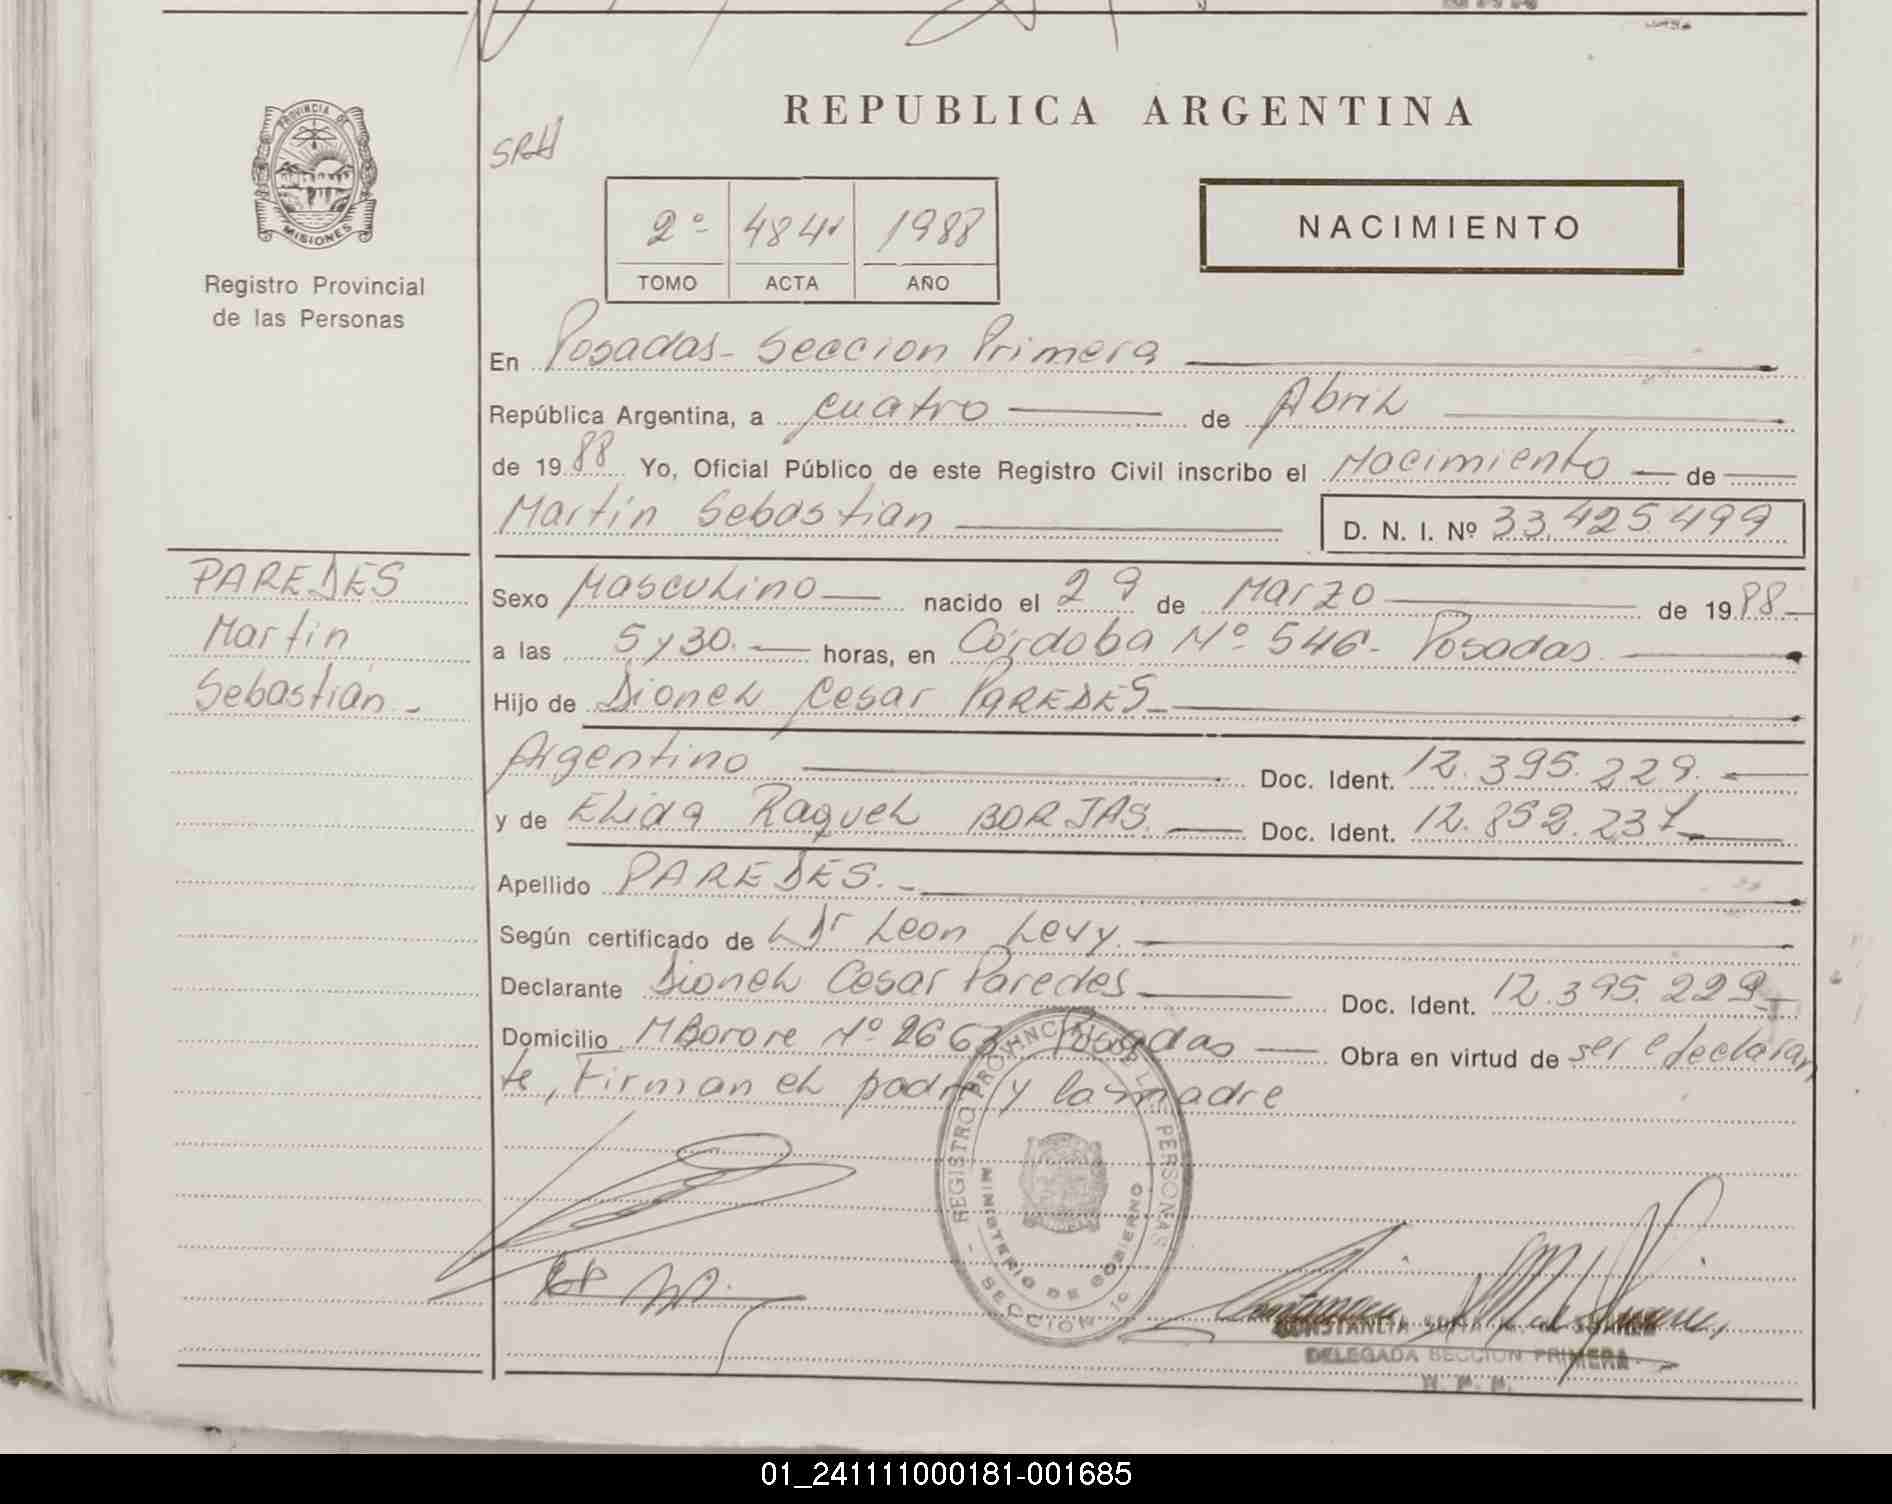 REPUBLICA ARGENTINA
PROVINCIA DE
MISIONES
Registro Provincial
de las Personas
SRH
2º 484 1988
TOMO ACTA AÑO
NACIMIENTO
En Posadas - Seccion Primera
República Argentina, a cuatro de Abril
de 1988 Yo, Oficial Público de este Registro Civil inscribo el Nacimiento de
Martin Sebastian D. N. I. Nº 33.425.499
PAREDES
Martin
Sebastian.-
Sexo Masculino nacido el 29 de Marzo de 1988
a las 5 y 30. horas, en Córdoba Nº 546 - Posadas.
Hijo de Dionel Cesar PAREDES
Argentino Doc. Ident. 12.395.229.
y de Elida Raquel BORJAS. Doc. Ident. 12.852.237
Apellido PAREDES.-
Según certificado de Dr Leon Levy.
Declarante Dionel Cesar Paredes Doc. Ident. 12.395.229
Domicilio MBorore Nº 2663 Posadas Obra en virtud de ser declaran
te, Firman el padre y la madre
REGISTRO PROVINCIAL DE LAS PERSONAS
MINISTERIO DE GOBIERNO
SECCION 1º
DELEGADA SECCION PRIMERA
01_241111000181-001685